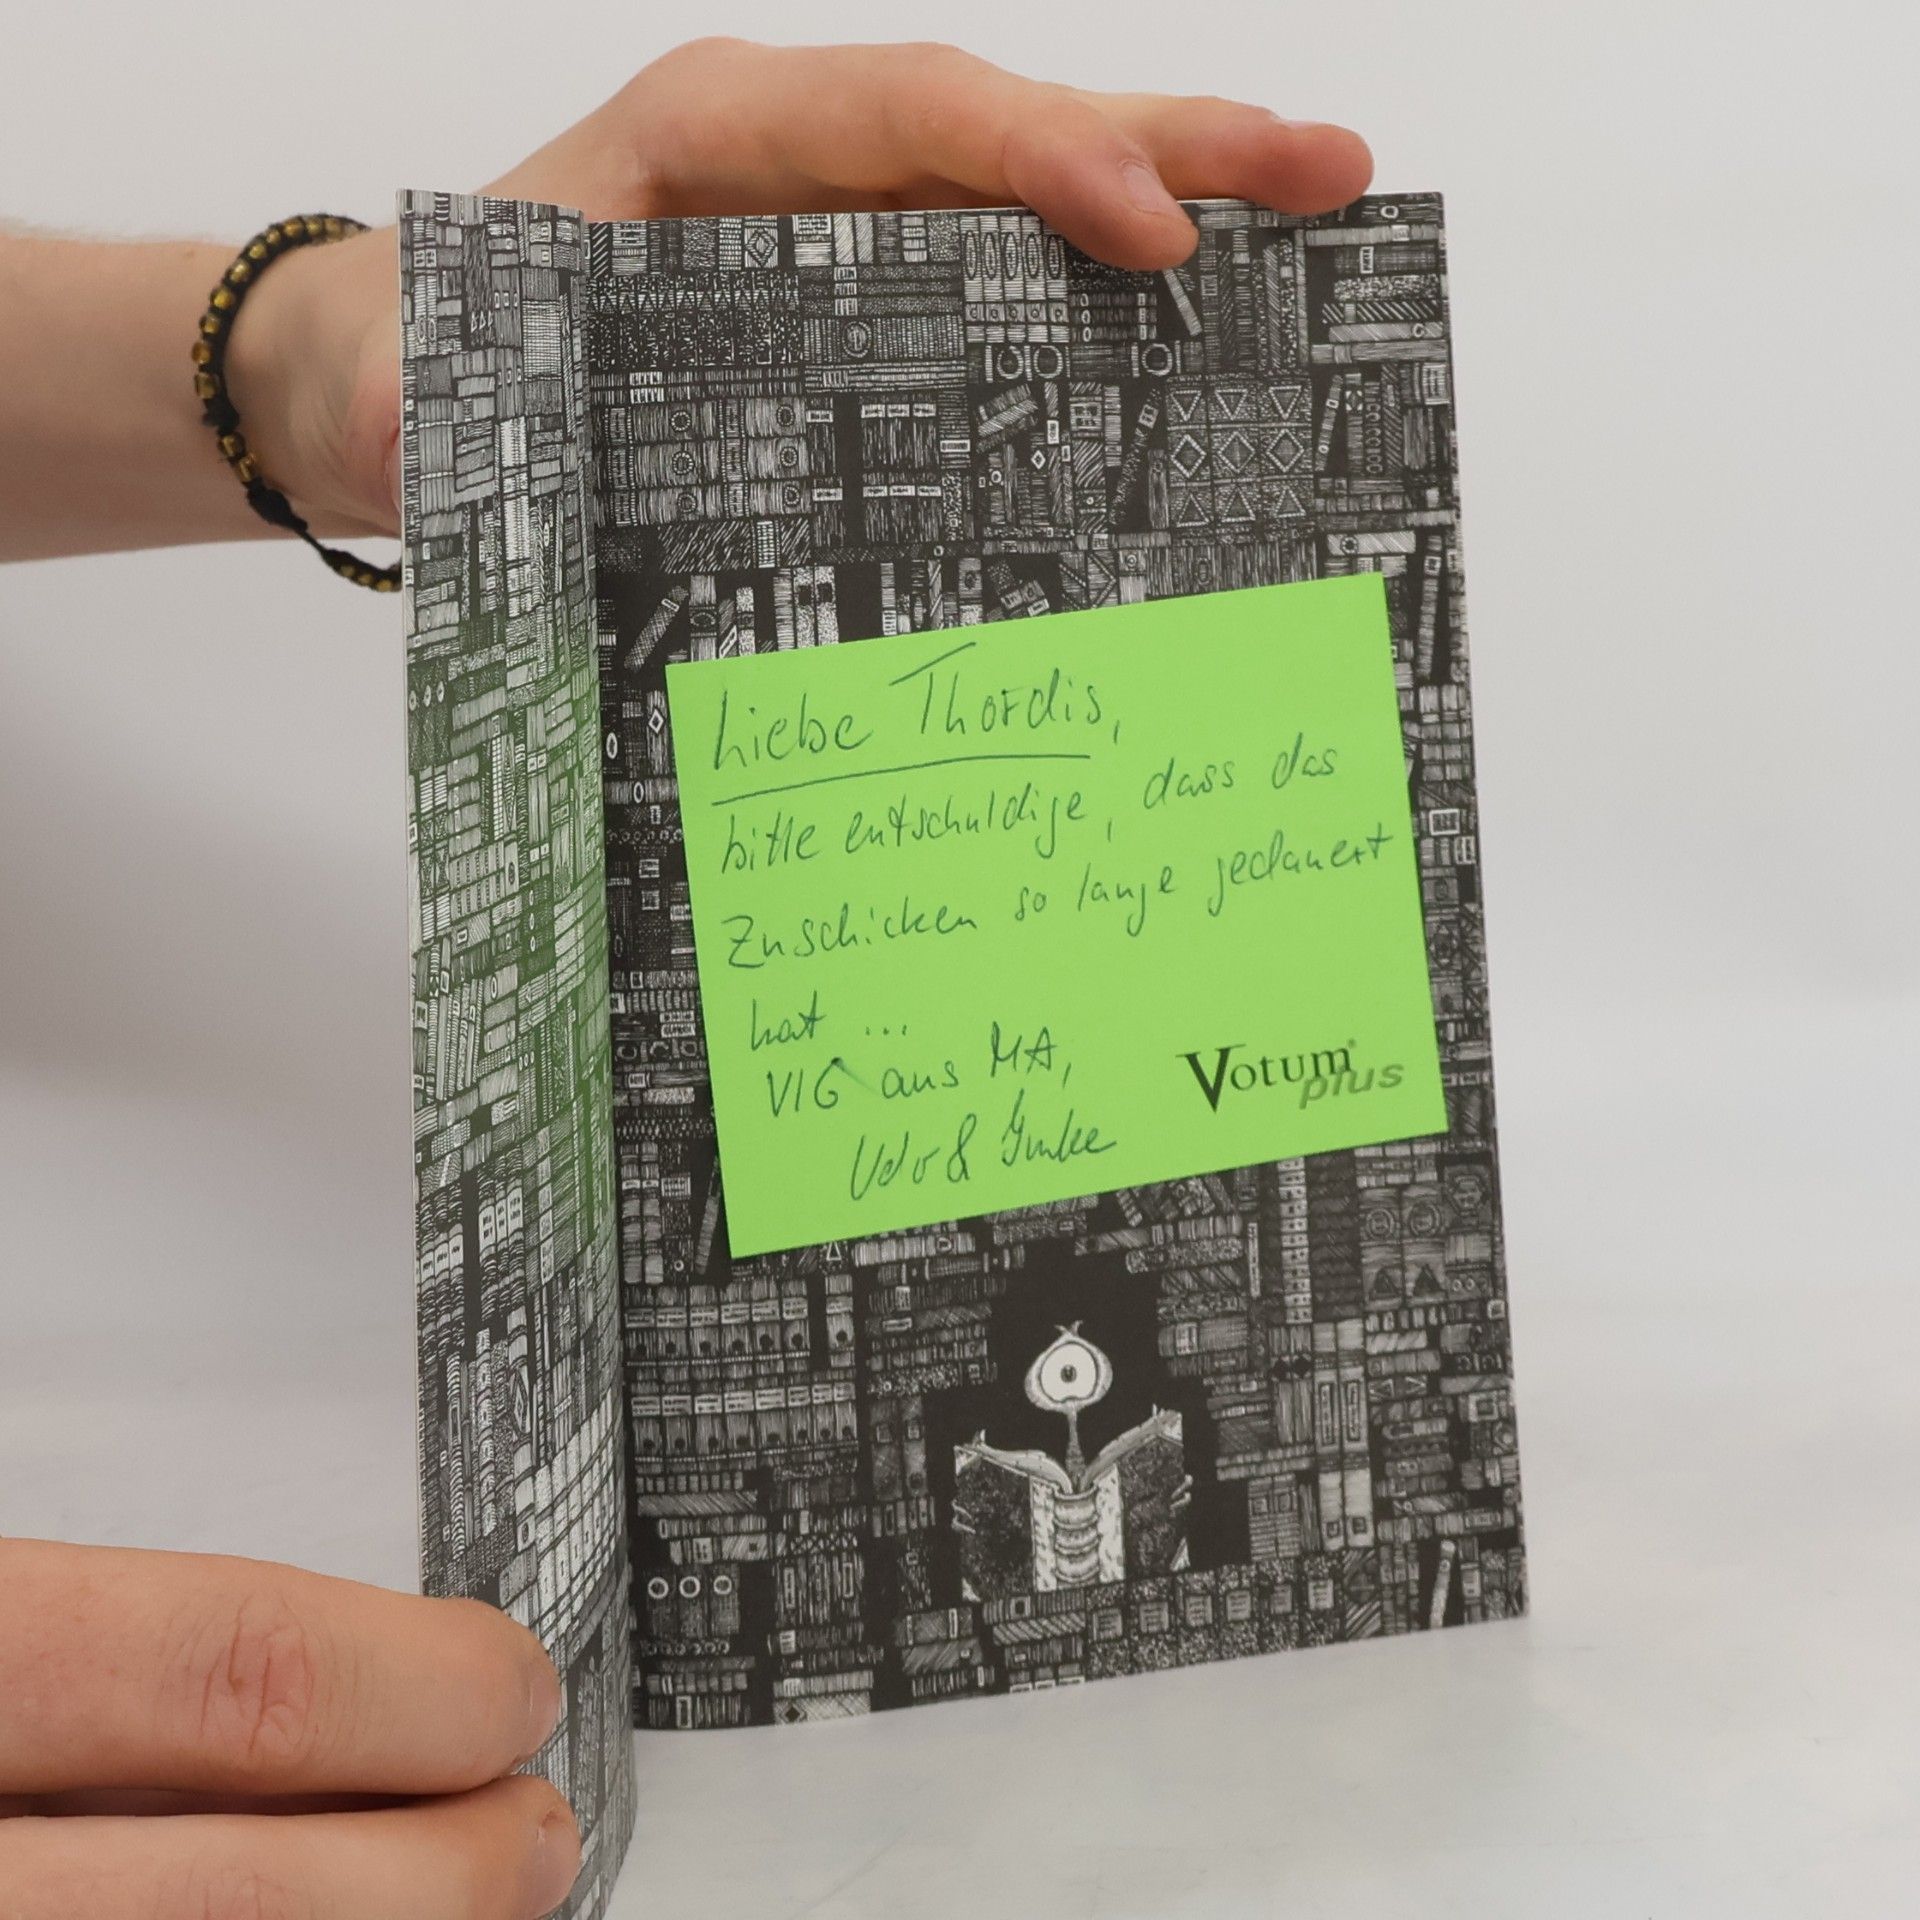 Liebe Thordis,
bitte entschuldige, dass das
Zuschicken so lange gedauert
hat ...
VlG aus MA,
Udo & Imke
Votum®
plus